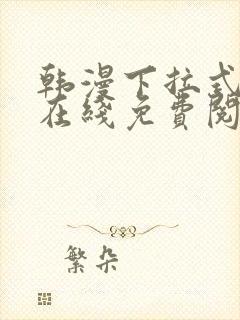 韩漫下拉式
在线免费阅
繁朵